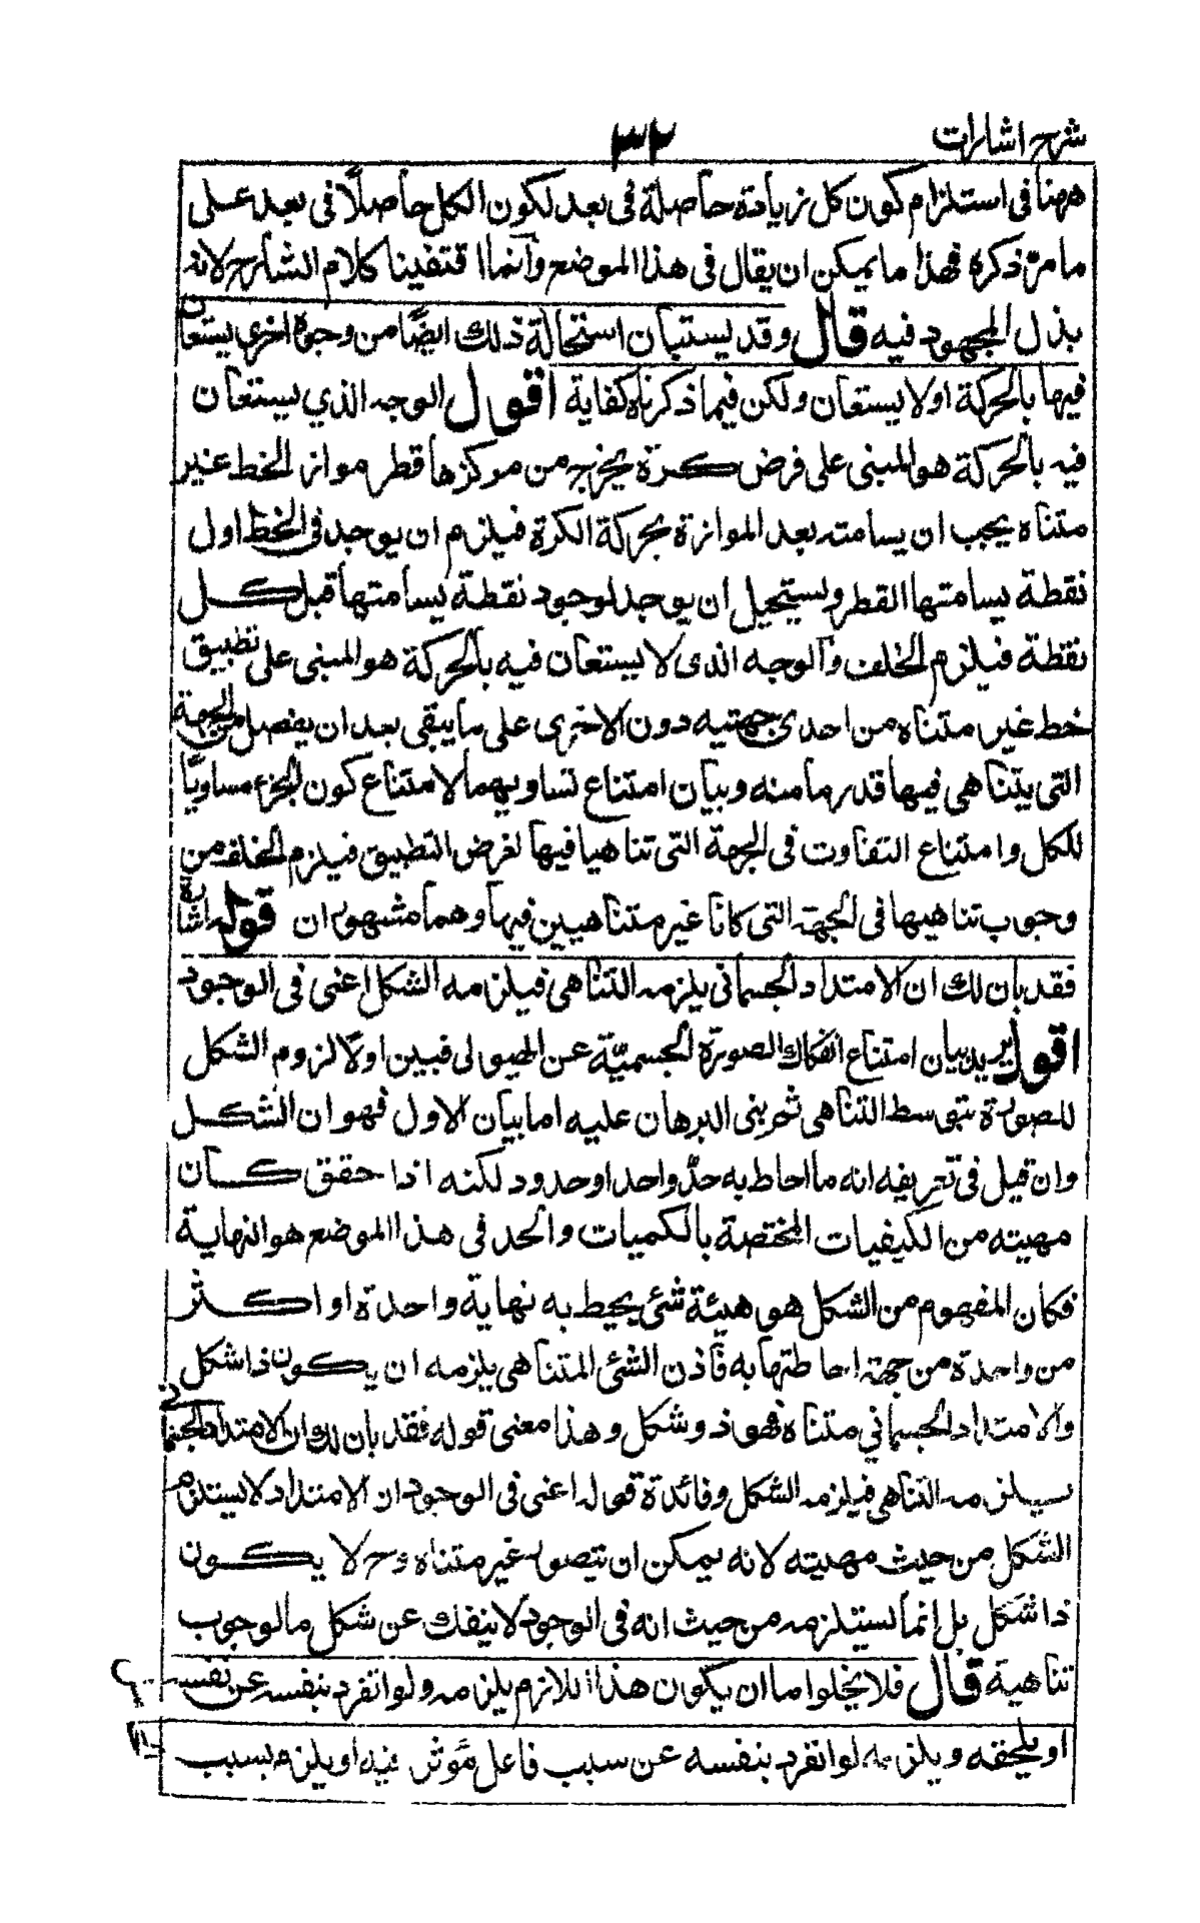 شرح اشارات
٣٢
ههنا فى استلزام كون كل زيادة حاصلة فى بعد لكون الكل حاصلًا فى بعد على
ما مرّ ذكره فهذا ما يمكن ان يقال فى هذا الموضع وانما اقتفينا كلام الشارح لانه
بذل المجهود فيه قال وقد يستبان استحالة ذلك ايضًا من وجوه اخرى يستعان
فيها بالحركة او لا يستعان ولكن فيما ذكرناه كفاية اقول الوجه الذي يستعان
فيه بالحركة هو المبنى على فرض كرة يخرج من مركزها قطر مواز لخط غير
متناه يجب ان يسامته بعد الموازة بحركة الكرة فيلزم ان يوجد فى الخط اول
نقطة يسامتها القطر ويستحيل ان يوجد لوجود نقطة يسامتها قبل كل
نقطة فيلزم الخلف والوجه الذى لا يستعان فيه بالحركة هو المبنى على تطبيق
خط غير متناه من احدى جهتيه دون الاخرى على ما يبقى بعد ان يفصل من الجهة
التى يتناهى فيها قدر ما منه وبيان امتناع تساويهما لامتناع كون الجزء مساويًا
للكل وامتناع التفاوت فى الجهة التى تناهيا فيها لفرض التطبيق فيلزم الخلف من
وجوب تناهيها فى الجهة التى كانا غير متناهيين فيها وهما مشهوران قوله اشارة
فقد بان لك ان الامتداد الجسمانى يلزمه التناهى فيلزمه الشكل اعنى فى الوجود
اقول يريد بيان امتناع انفكاك الصورة الجسميّة عن الهيولى فبين اولًا لزوم الشكل
للصورة بتوسط التناهى ثم بنى البرهان عليه اما بيان الاول فهو ان الشكل
وان قيل فى تعريفه انه ما احاط به حدّ واحد او حدود لكنه اذا حقق كان
مهيته من الكيفيات المختصة بالكميات والحد فى هذا الموضع هو النهاية
فكان المفهوم من الشكل هو هيئة شئ يحيط به نهاية واحدة او اكثر
من واحدة من جهة احاطتها به فاذن الشئ المتناهى يلزمه ان يكون ذا شكل
والامتداد الجسماني متناه فهو ذو شكل وهذا معنى قوله فقد بان لك ان الامتداد الجسمانى
يلزمه التناهى فيلزمه الشكل وفائدة قوله اعنى فى الوجود ان الامتداد لا يستلزم
الشكل من حيث مهيته لانه يمكن ان يتصور غير متناه وح لا يكون
ذا شكل بل انما يستلزمه من حيث انه فى الوجود لا ينفك عن شكل ما لوجوب
تناهية قال فلا يخلوا ما ان يكون هذا اللازم يلزمه ولو انفرد بنفسه عن نفسه
او يلحقه ويلزمه لو انفرد بنفسه عن سبب فاعل مؤثر فيه او يلزمه بسبب